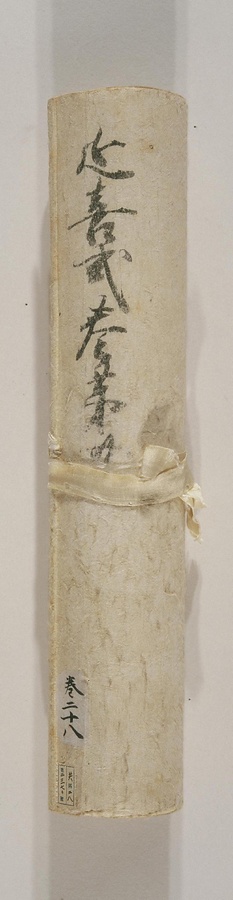 延喜式巻第九
巻二十八